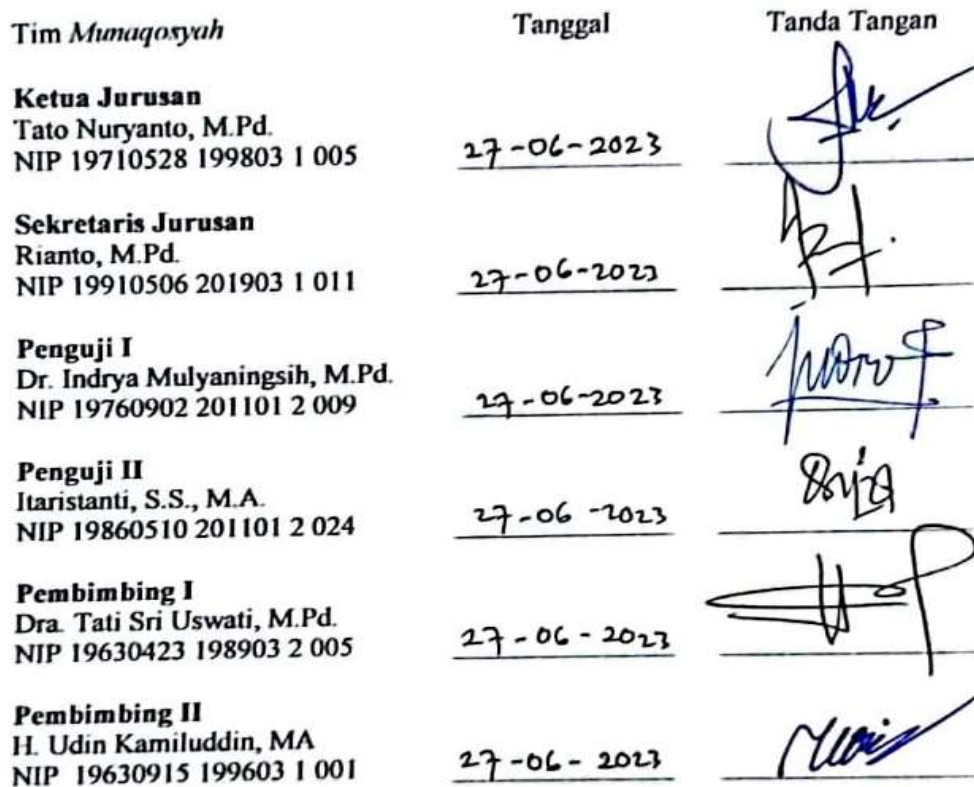 Tim Munaqosyah Tanggal Tanda Tangan
Ketua Jurusan
Tato Nuryanto, M.Pd.
NIP 19710528 199803 1 005 27-06-2023
Sekretaris Jurusan
Rianto, M.Pd.
NIP 19910506 201903 1 011 27-06-2023
Penguji I
Dr. Indrya Mulyaningsih, M.Pd.
NIP 19760902 201101 2 009 27-06-2023
Penguji II
Itaristanti, S.S., M.A.
NIP 19860510 201101 2 024 27-06-2023
Pembimbing I
Dra. Tati Sri Uswati, M.Pd.
NIP 19630423 198903 2 005 27-06-2023
Pembimbing II
H. Udin Kamiluddin, MA
NIP 19630915 199603 1 001 27-06-2023